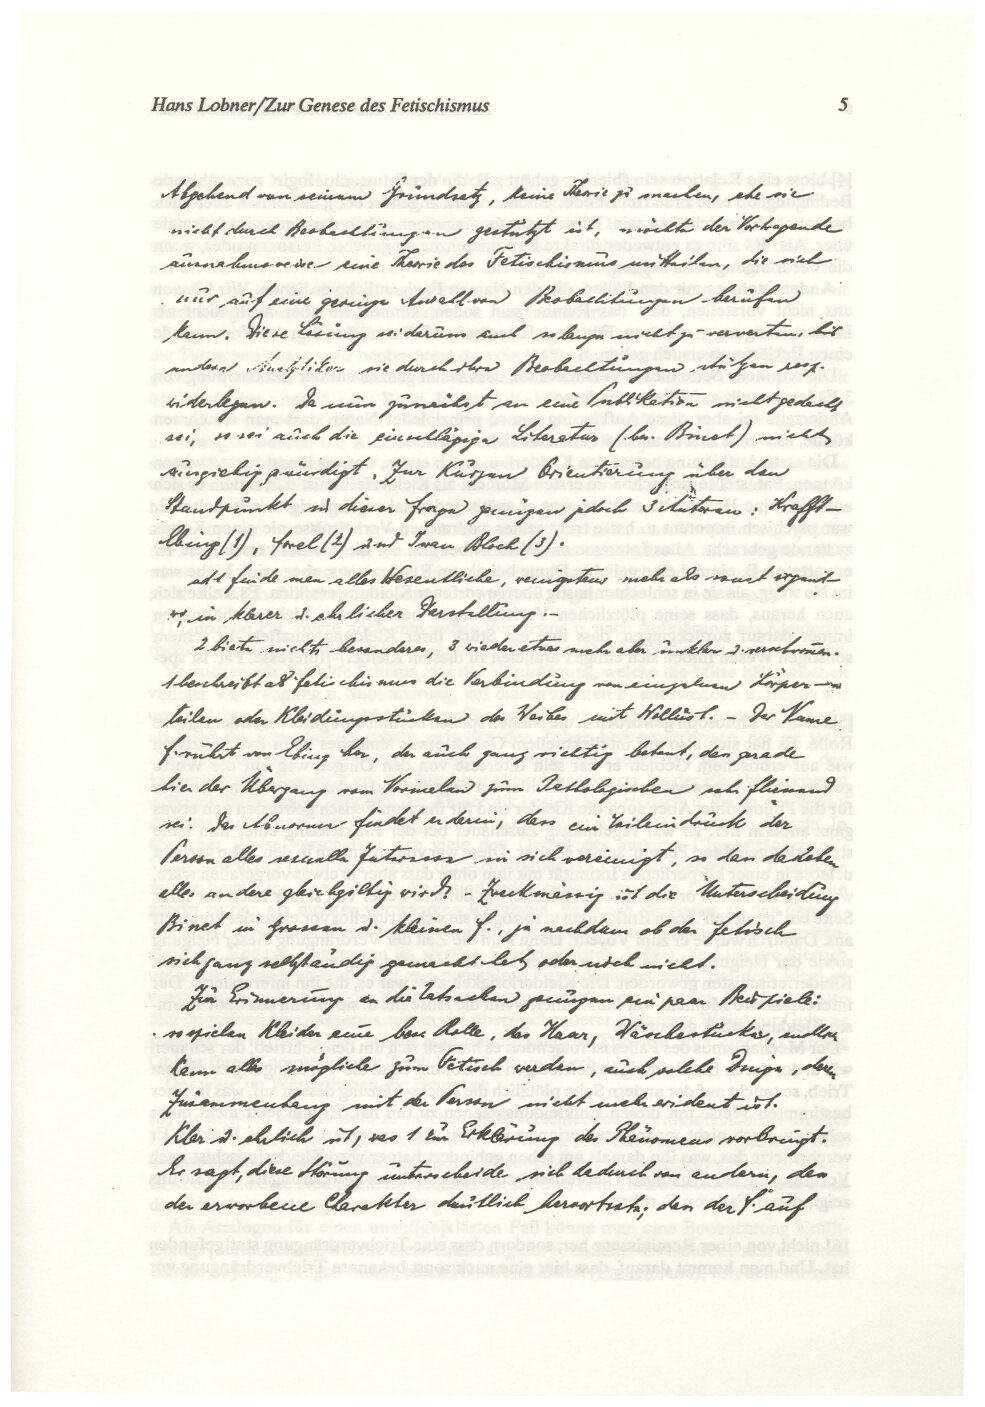 Hans Lobner/Zur Genese des Fetischismus 5
Abgehend von seinem Grundsatz, keine Theorie zu machen, ehe sie
nicht durch Beobachtungen gestützt ist, möchte der Vortragende
ausnahmsweise eine Theorie des Fetischismus mitteilen, die sich
nur auf eine geringe Anzahl von Beobachtungen berufen
kann. Diese Lösung sei darum auch solange nicht zu verwerten, bis
andere Analytiker sie durch ihre Beobachtungen stützen resp.
widerlegen. Da nun zunächst an eine Publikation nicht gedacht
sei, so sei auch die einschlägige Literatur (bes. Binet) nicht
ausgiebig gewürdigt. Zur kurzen Orientierung über den
Standpunkt in dieser Frage genügen jedoch 3 Autoren: Krafft-
Ebing (1), Forel (2) und Iwan Bloch (3).
ad 1 finde man alles Wesentliche, wenigstens mehr als sonst
in klarer u. ehrlicher Darstellung. –
2 biete nichts besonderes, 3 wieder etwas mehr aber unklar u. verschwommen.
1 beschreibt als Fetischismus die Verbindung von einzelnen Körper-
teilen oder Kleidungsstücken des Weibes mit Wollust. – Der Name
F. rührt von Ebing her, der auch ganz richtig betont, dass gerade
hier der Übergang vom Normalen zum Pathologischen sehr fliessend
sei. Das Abnorme findet er darin, dass ein Teileindruck der
Person alles sexuelle Interesse in sich vereinigt, so dass daneben
alles andere gleichgiltig wird. – Zweckmässig ist die Unterscheidung
Binet in grossen u. kleinen F., je nachdem ob der Fetisch
sich ganz selbständig gemacht hat oder noch nicht.
Zur Erinnerung an die Tatsachen genügen ein paar Beispiele:
so spielen Kleider eine bes. Rolle, das Haar, Wäschestücke, endlich
kann alles mögliche zum Fetisch werden, auch solche Dinge, deren
Zusammenhang mit der Person nicht mehr evident ist.
Klar u. ehrlich ist, was 1 zur Erklärung des Phänomens vorbringt.
Er sagt, diese Störung unterscheide sich dadurch von andern, dass
der erworbene Charakter deutlich hervortrete; dass der F. auf